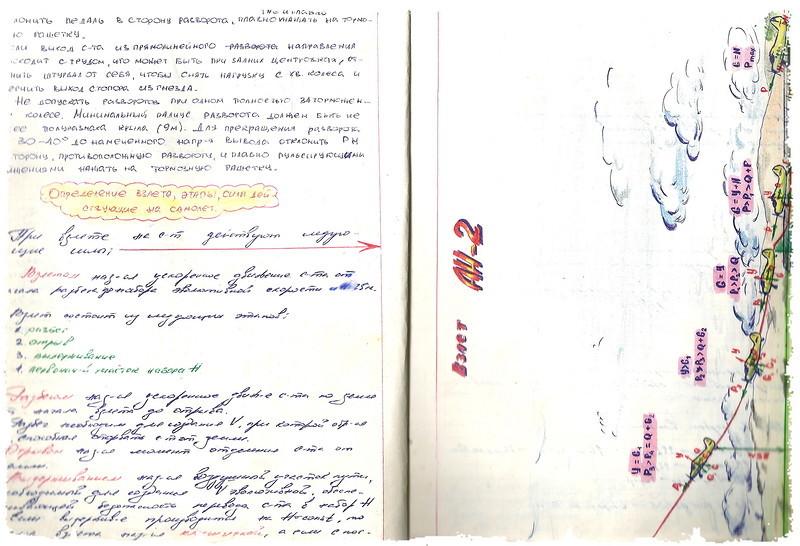 лонить педаль в сторону разворота, плавно нажать на тормо-
ую гашетку.
сли выход с-та из прямолинейного разворота направления
сходит с трудом, что может быть при задних центровках, от-
нить штурвал от себя, чтобы снять нагрузку с хв. колеса и
егчить выход стопора из гнезда.
Не допускать разворотов при одном полностью заторможен-
колесе. Минимальный радиус разворота должен быть не
ее полуразмаха крыла (9м). Для прекращения разворота
30-40° до намеченного напр-я вывода отклонить РН
торону, противоположную развороту, и плавно пульсирующими
нажать на тормозную гашетку.
Определение взлета, этапы, силы дей-
ствующие на самолет.
При взлете на с-т действуют следую-
щие силы:
Взлетом наз-ся ускоренное движение с-та от
начала разбега до набора эволютивной скорости 25м.
Взлет состоит из следующих этапов:
1. разбег
2. отрыв
3. выдерживание
4. первонач-й участок набора H
Разбегом наз-ся ускоренное движ-е с-та по земле
начала взлета до отрыва.
Разбег необходим для создания V, при которой
способная оторвать с-т от земли.
Отрывом наз-ся момент отделения с-та от
земли.
Выдерживанием наз-ся воздушный участок пути,
необходимый для создания V эволютивной, обеспе-
чивающей безопасность перевода с-та в набор H
Если выдерж-е производится на H=const, то
взлета наз-ся а если с пос-
Взлет АН-2
G=N
Pmax
P
G=Y+N
P>P₁>Q+F
G=Y
P>P₂>Q
Y>G₁
P₂>P₃>Q+G₂
Y=G₁
P₃>P₄=Q+G₂